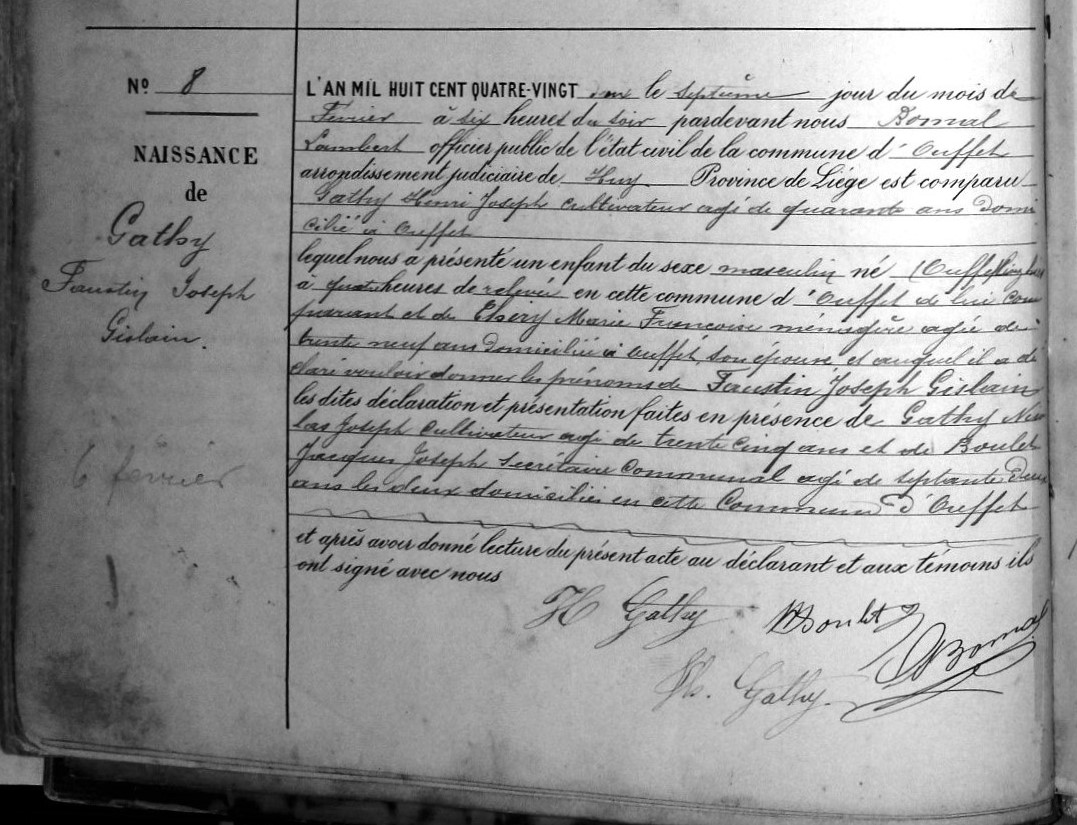 Nº 8
NAISSANCE
de
Gathy
Faustin Joseph
Gislain.
6 fevrier
L'AN MIL HUIT CENT QUATRE-VINGT le septième jour du mois de
Fevrier à six heures du soir pardevant nous Bomal
Lambert officier public de l'état civil de la commune d' Ouffet
arrondissement judiciaire de Huy Province de Liége est comparu
Gathy Henri Joseph cultivateur agé de quarante ans domi
cilié à Ouffet
lequel nous a présenté un enfant du sexe masculin né (Ouffet
à quatre heures de relevée en cette commune d' Ouffet de lui com
parant et de Thery Marie Françoise ménagère agée de
trente neuf ans domiciliée à Ouffet, son épouse et auquel il a dé
claré vouloir donner les prénoms de Faustin Joseph Gislain
les dites déclaration et présentation faites en présence de Gathy Nico
las Joseph cultivateur agé de trente cinq ans et de Boulet
Jacques Joseph secrétaire communal agé de septante deux
ans les deux domiciliés en cette Commune d'Ouffet
et après avoir donné lecture du présent acte au déclarant et aux témoins ils
ont signé avec nous
H Gathy Boulet
Bomal
Gathy